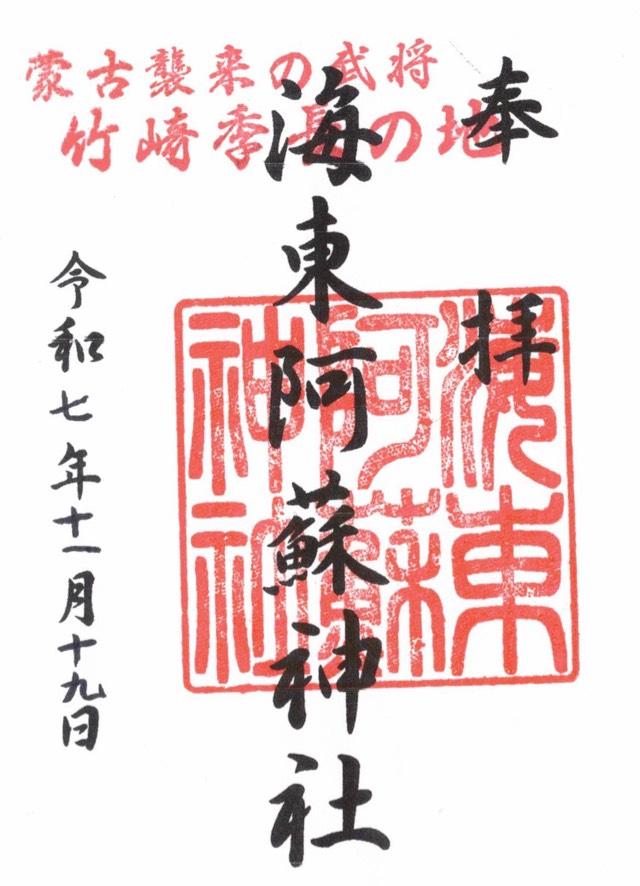 蒙古襲来の武将
竹崎季長の地
奉拝
海東阿蘇神社
海東阿蘇神社
令和七年十一月十九日